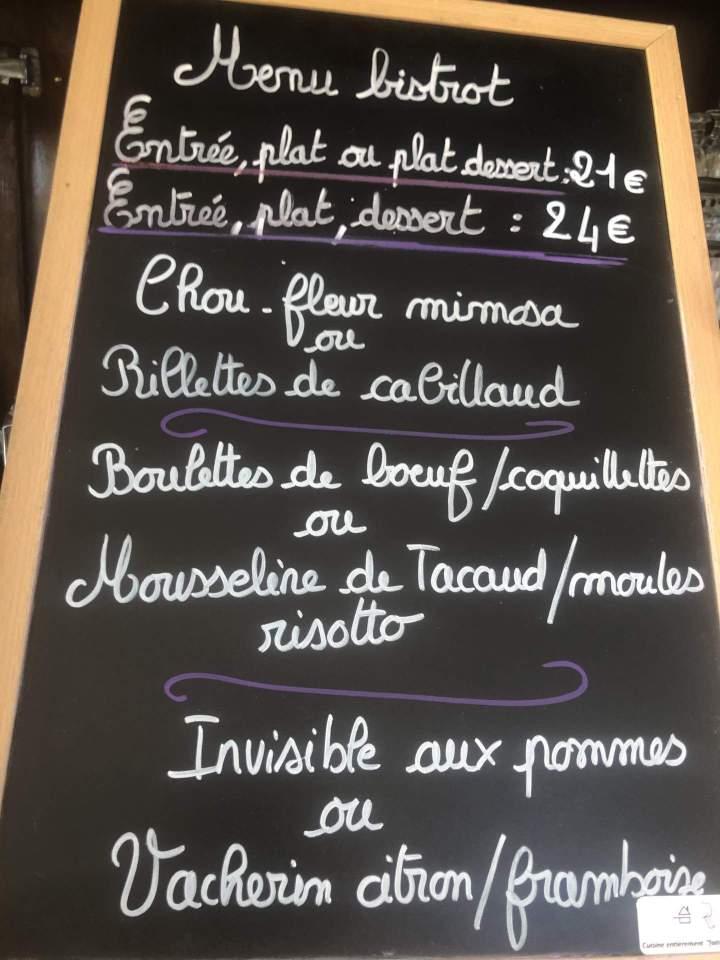 Menu bistrot
Entrée, plat ou plat dessert : 21€
Entrée, plat, dessert : 24€
Chou-fleur mimosa
ou
Rillettes de cabillaud
Boulettes de boeuf/coquillettes
ou
Mousseline de Tacaud/moules
risotto
Invisible aux pommes
ou
Vacherin citron/framboise
Cuisine entièrement